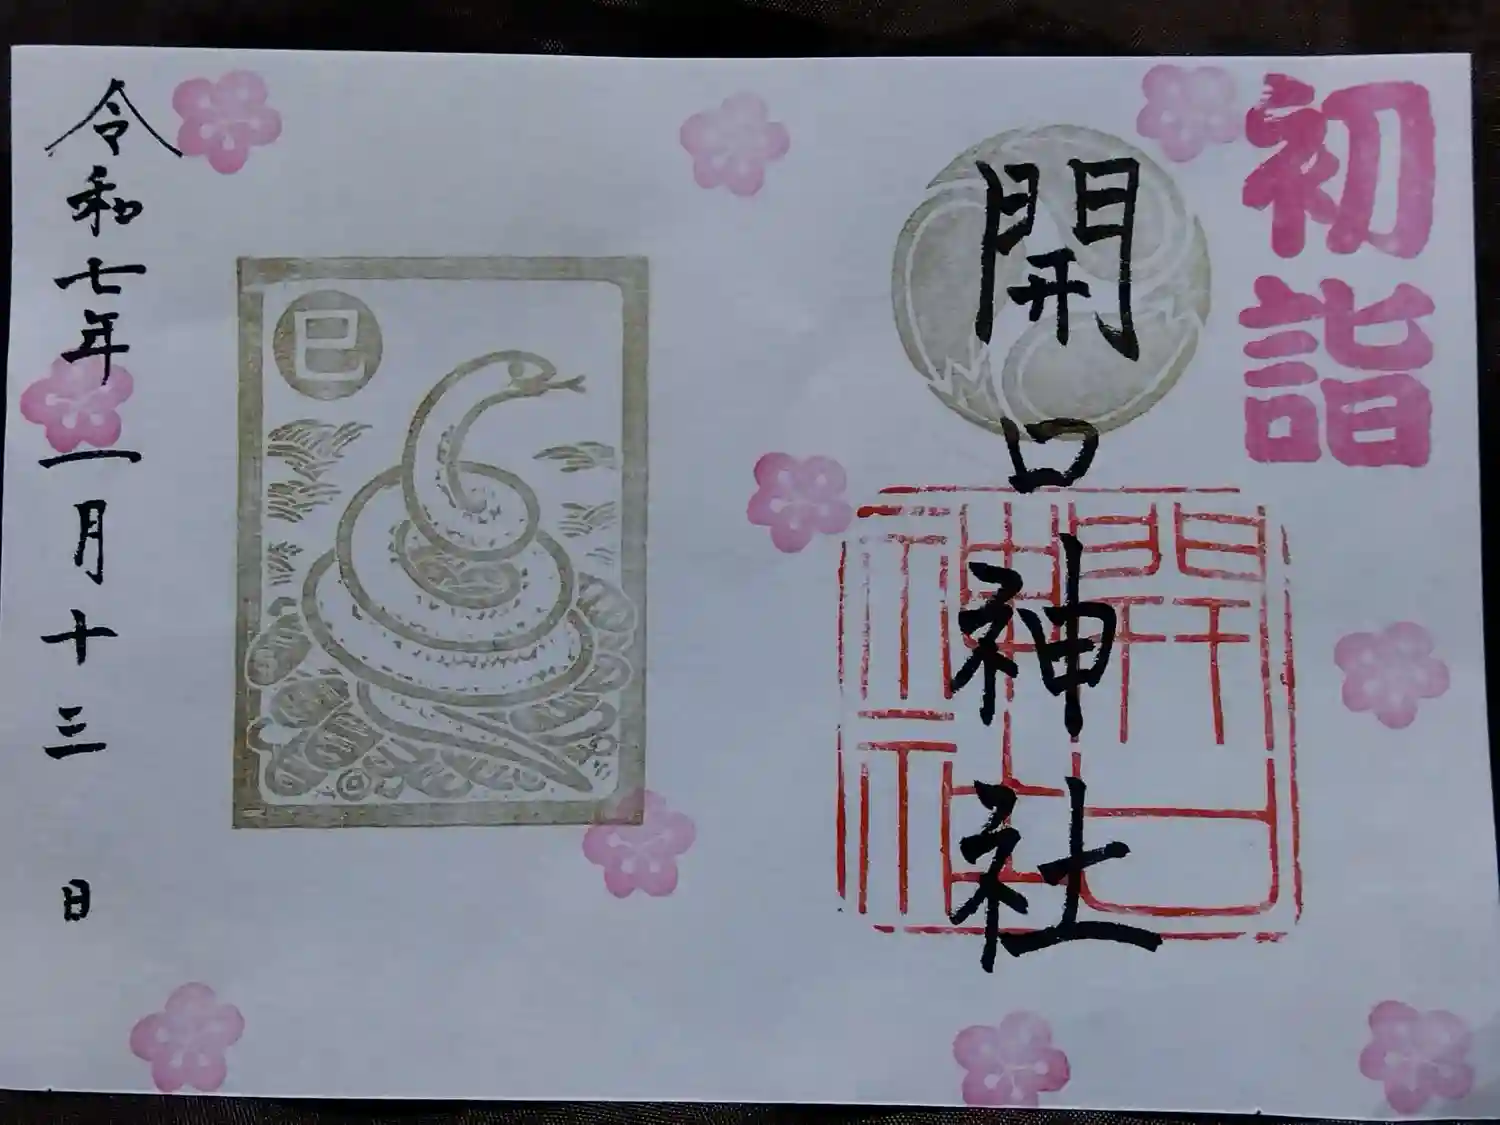 初詣
開口神社
開口神社
巳
令和七年一月十三日